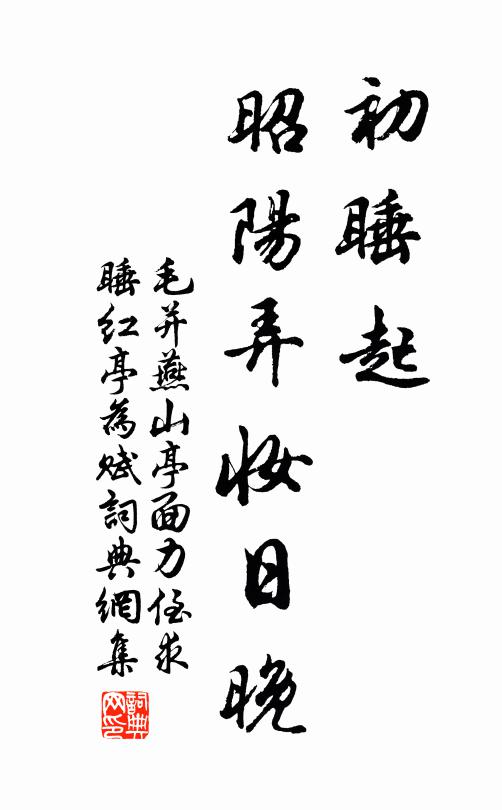 初睡起
昭陽弄妝日晚
毛并燕山亭面力侄求
睡红亭為赋詞典網集
詞典网印